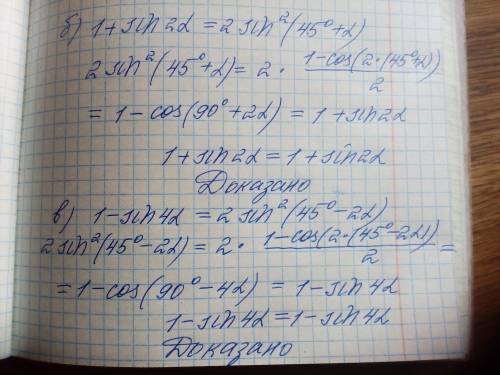 б) 1+sin2α = 2sin²(45°+α)
2sin²(45°+α) = 2 · (1-cos(2·(45°+α)))/2
= 1-cos(90°+2α) = 1+sin2α
1+sin2α = 1+sin2α
Доказано
в) 1-sin4α = 2sin²(45°-2α)
2sin²(45°-2α) = 2 · (1-cos(2·(45°-2α)))/2 =
= 1-cos(90°-4α) = 1-sin4α
1-sin4α = 1-sin4α
Доказано